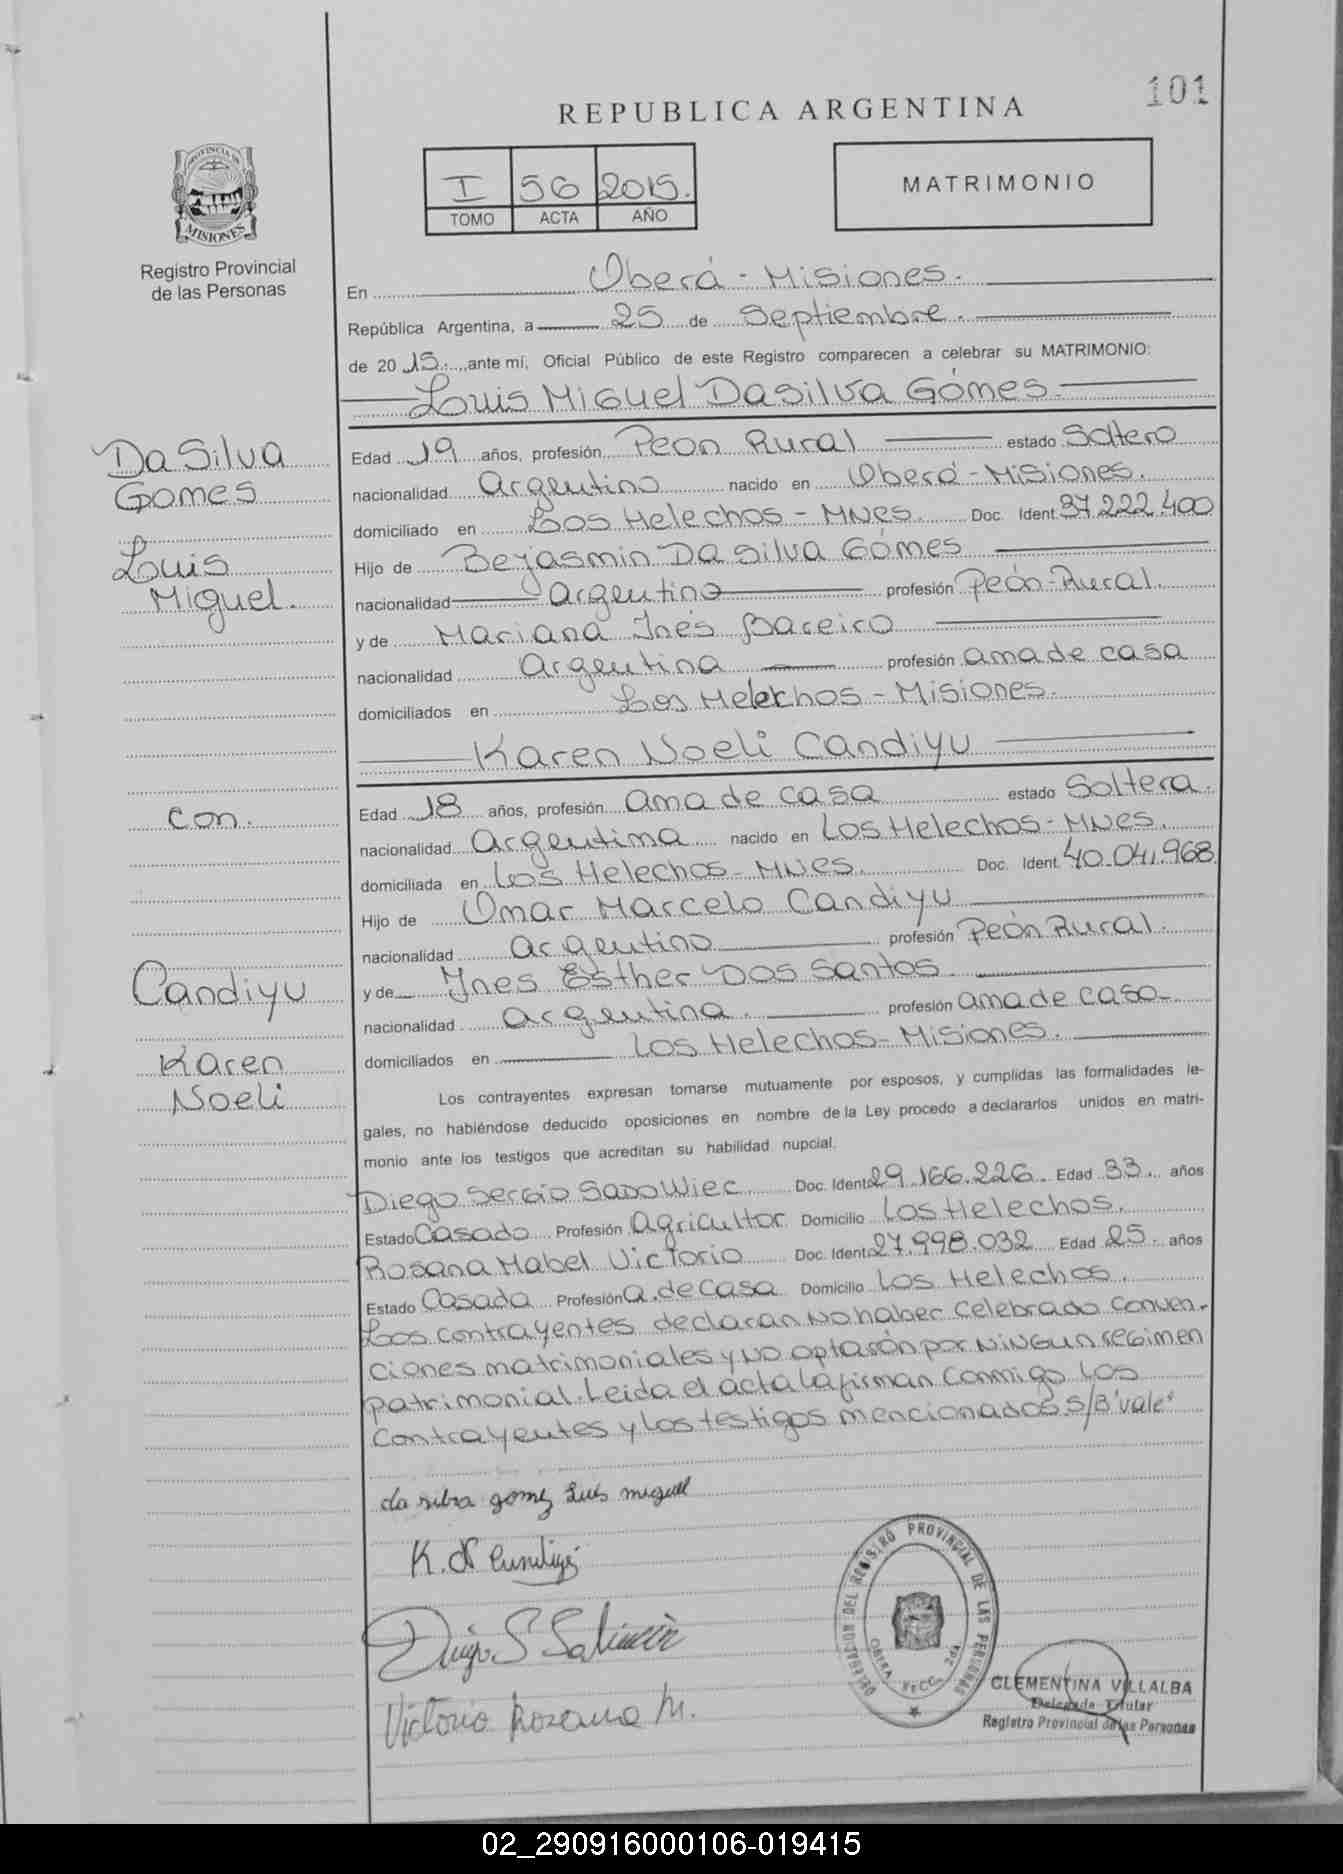 101
REPUBLICA ARGENTINA
PROVINCIA DE
MISIONES
I 56 2015.
TOMO ACTA AÑO
MATRIMONIO
Registro Provincial
de las Personas
En Oberá - Misiones.
República Argentina, a 25 de Septiembre.
de 2015., ante mí, Oficial Público de este Registro comparecen a celebrar su MATRIMONIO:
Luis Miguel Da Silva Gómes.
Da Silva
Gomes
Luis
Miguel.
con.
Candiyu
Karen
Noeli
Edad 19 años, profesión Peon Rural estado Soltero
nacionalidad Argentino nacido en Oberá - Misiones.
domiciliado en Los Helechos - MNES. Doc. Ident. 37.222.400
Hijo de Bejasmin Da Silva Gómes
nacionalidad argentino profesión Peón-Rural.
y de Mariana Inés Baceiro
nacionalidad argentina profesión ama de casa
domiciliados en Los Helechos - Misiones.
Karen Noeli Candiyu
Edad 18 años, profesión ama de casa estado Soltera.
nacionalidad argentina nacido en Los Helechos - MNES.
domiciliada en Los Helechos - MNES. Doc. Ident. 40.041.968
Hijo de Omar Marcelo Candiyu
nacionalidad argentino profesión Peón Rural.
y de Ines Esther Dos Santos.
nacionalidad argentina. profesión ama de casa
domiciliados en Los Helechos - Misiones.
Los contrayentes expresan tomarse mutuamente por esposos, y cumplidas las formalidades le-
gales, no habiéndose deducido oposiciones en nombre de la Ley procedo a declararlos unidos en matri-
monio ante los testigos que acreditan su habilidad nupcial.
Diego Sergio Sadowiec Doc. Ident. 29.166.226. Edad 33 años
Estado Casado Profesión Agricultor Domicilio Los Helechos.
Rosana Mabel Victorio Doc. Ident. 27.998.032 Edad 25. años
Estado Casada Profesión A. de Casa Domicilio Los Helechos.
Los contrayentes declaran no haber celebrado conven-
ciones matrimoniales y no optarón por ningun regimen
patrimonial. Leida el acta la firman conmigo los
contrayentes y los testigos mencionados S/B "vale"
da silva gomez Luis miguel
K. N Candiyú
Diego S Sadowiec
Victorio Rozana M.
DELEGACION DEL REGISTRO PROVINCIAL DE LAS PERSONAS
OBERA SECC. 2da
CLEMENTINA VILLALBA
Delegada Titular
Registro Provincial de las Personas
02_290916000106-019415